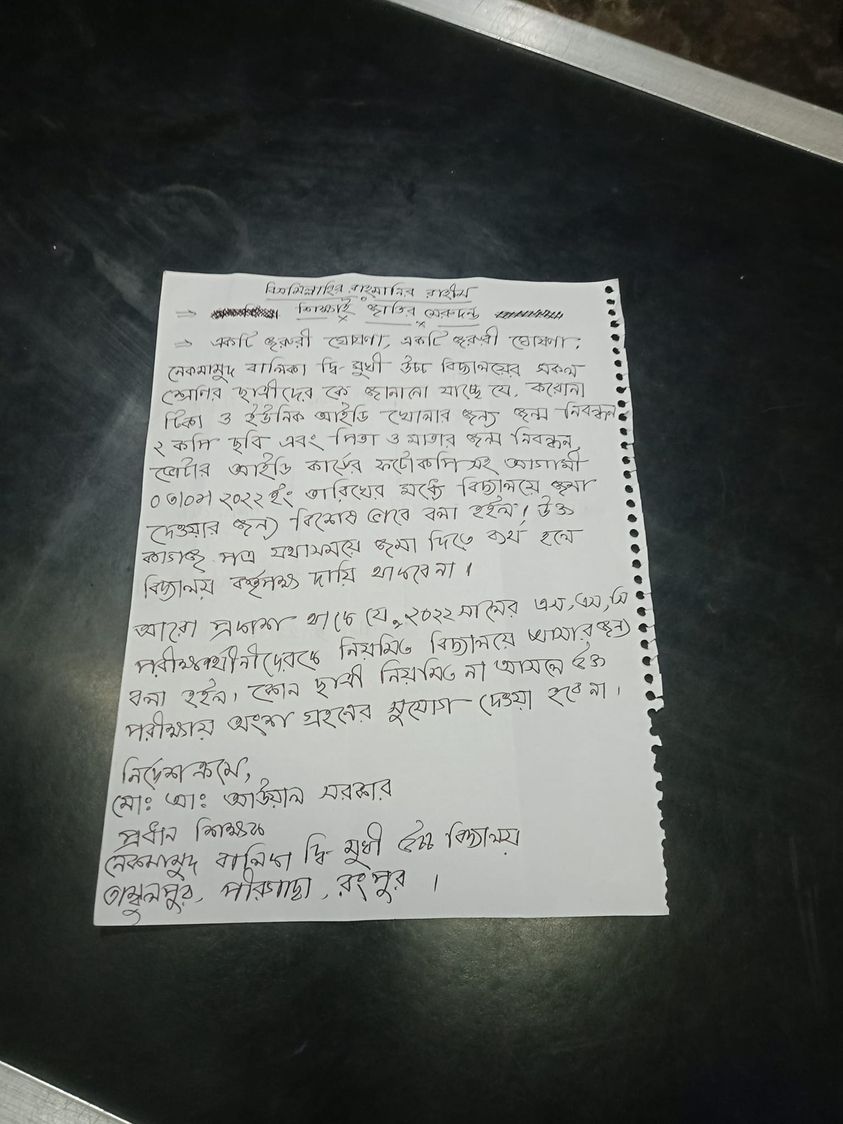 বিসমিল্লাহির রাহমানির রাহীম
⇒ শিক্ষাই জাতির মেরুদন্ড
⇒ একটি জরুরী ঘোষণা, একটি জরুরী ঘোষণা;
নেকমামুদ বালিকা দ্বি-মুখী উচ্চ বিদ্যালয়ের সকল
শ্রেনির ছাত্রীদের কে জানানো যাচ্ছে যে, করোনা
টিকা ও ইউনিক আইডি খোলার জন্য জন্ম নিবন্ধন,
২ কপি ছবি এবং পিতা ও মাতার জন্ম নিবন্ধন,
ভোটার আইডি কার্ডের ফটোকপি সহ আগামী
২০২২ ইং তারিখের মধ্যে বিদ্যালয়ে জমা
দেওয়ার জন্য বিশেষ ভাবে বলা হইল। উক্ত
কাগজ পত্র যথাসময়ে জমা দিতে ব্যর্থ হলে
বিদ্যালয় কর্তৃপক্ষ দায়ি থাকবে না।
আরো প্রকাশ থাকে যে, ২০২২ সালের এস, এস, সি
পরীক্ষার্থীনীদেরকে নিয়মিত বিদ্যালয়ে আসার জন্য
বলা হইল, কোন ছাত্রী নিয়মিত না আসলে উক্ত
পরীক্ষায় অংশ গ্রহনের সুযোগ দেওয়া হবে না।
নির্দেশ ক্রমে,
মোঃ আঃ আউয়াল সরকার
প্রধান শিক্ষক
নেকমামুদ বালিকা দ্বি-মুখী উচ্চ বিদ্যালয়
তাম্বুলপুর, পীরগাছা, রংপুর।